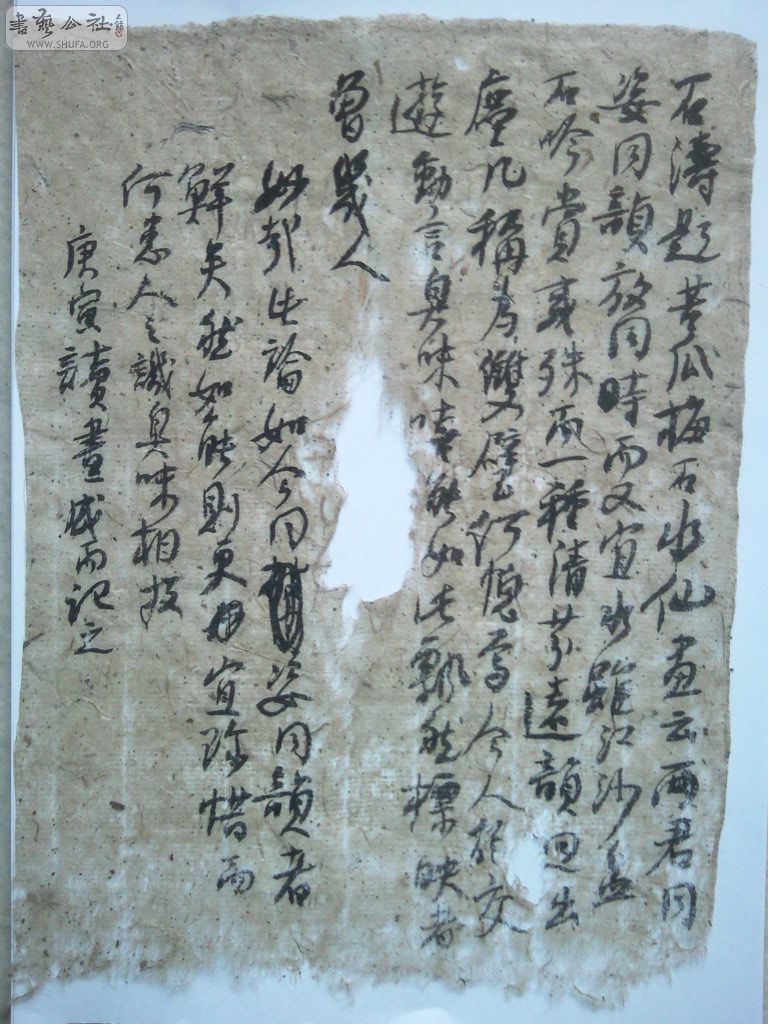 石濤題苦瓜梅石水仙畫云兩君同
姿同韻故同時而又宜水雖紅沙盂
石吟賞或殊而一種清芬遠韻迥出
塵凡稱為雙璧何愧焉今人於交
遊動言臭味嘻能如此飄然標映者
曾幾人
妙哉此論如今同姿同韻者
鮮矣然如能則更宜珍惜而
何患人之譏臭味相投
庚寅讀畫感而記之
書藝公社
WWW.SHUFA.ORG